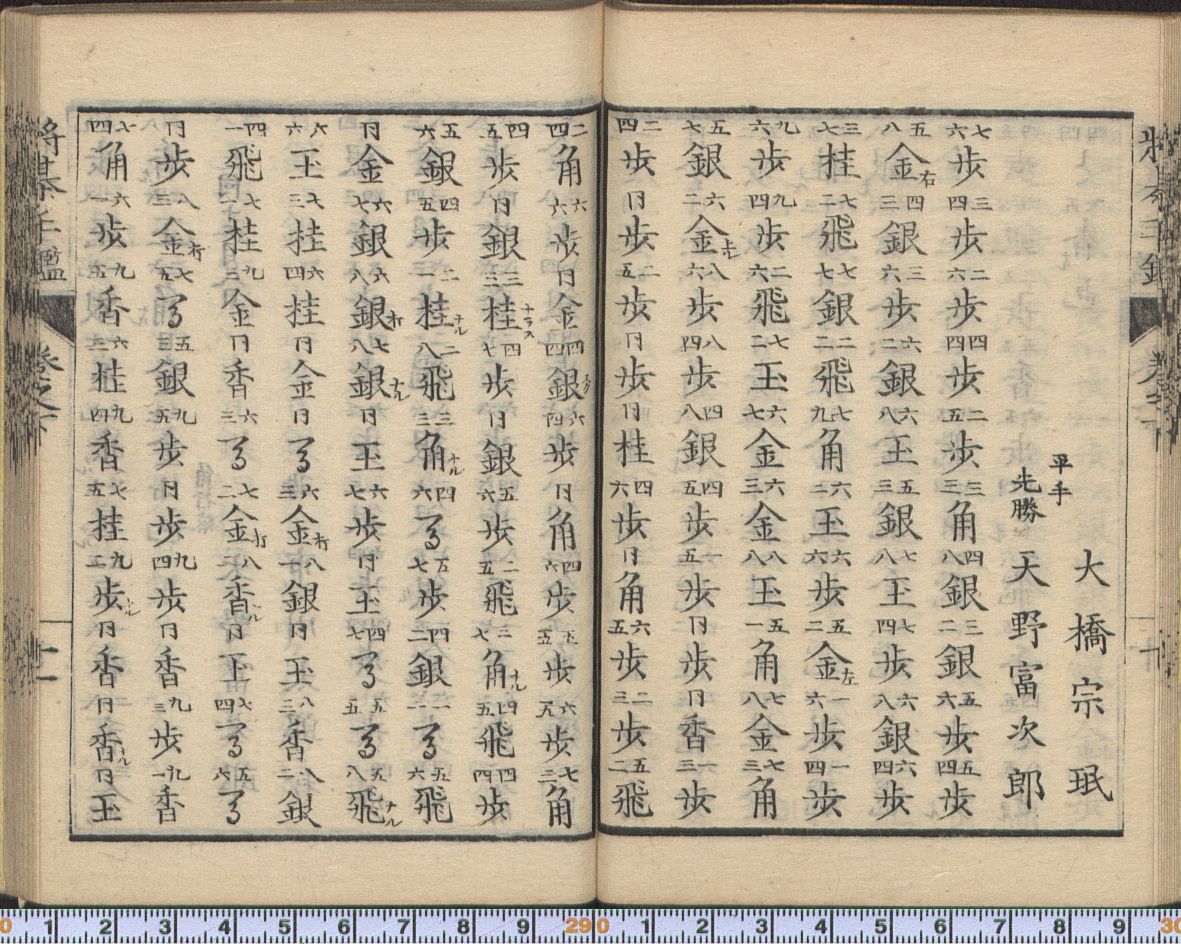 大橋宗珉
平手先勝 天野富次郎
七六歩 三四歩 二六歩 四四歩 二五歩 三三角 四八銀 三二銀 五六歩 五四歩
五八金右 四三銀 三六歩 六二銀 六八王 五三銀 七八王 七四歩 六八銀 六四歩
三七桂 七二飛 七七銀 二二飛 七九角 六二王 六六歩 五二金左 一六歩 一四歩
九六歩 九四歩 二六飛 七二王 六七金 六三金 八八王 五一角 七八金 七三角
五七銀 六二金上 八六歩 八四歩 四八銀 四五歩 一五歩 同歩 同香 一三歩
二四歩 同歩 二五歩 同歩 同桂 四六歩 同角 六五歩 二三歩 五二飛
二四角 六六歩 同金 四四銀 六四歩 同角 四六歩 五五歩 六五歩 七三角
四五歩 同銀 三三桂ナラス 四七歩 同銀 五六歩 二五飛 三七角ナル 四五飛 四四歩
五六銀 四五歩 二一桂ナル 二八飛 三三角ナル 四六馬 五七歩 四二銀 一一馬 五六飛
同金 六七銀 六八銀打 七八銀ナル 同王 六七歩 同王 四七馬 五五馬 五八飛ナル
六六王 七三桂 六四桂 同金 同馬 六三金打 八一銀 同王 八三香 八二銀
四一飛 七一桂 九三金 同香 六三馬 七二金打 八二香ナル 同王 七四馬 五六馬
同歩 八三金打 七五馬 五三銀 九五歩 同歩 九四歩 同香 九三歩 九一香
七四角 六一歩 九五香 六三桂 九四香 七五桂 九二歩ナル 同香 同香ナル 同王
将棊手鑑 卷之下 十一